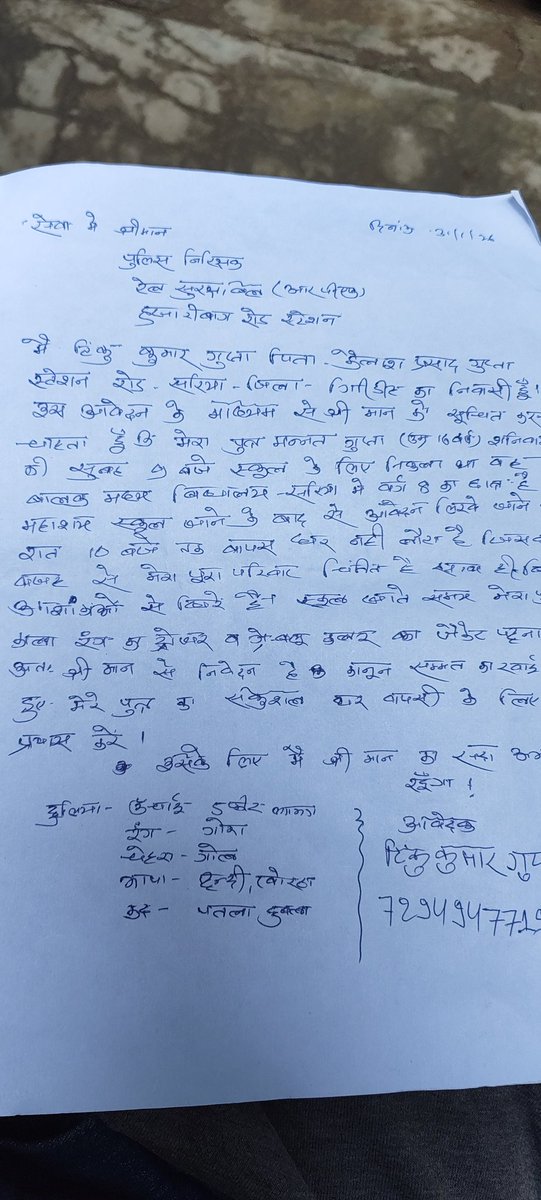 सेवा में श्रीमान दिनांक 31/1/26
पुलिस निरिक्षक
रेल सुरक्षा बल (आरपीएफ)
हजारीबाग रोड स्टेशन
मै टिंकु कुमार गुप्ता पिता - कैलाश प्रसाद गुप्ता
स्टेशन रोड - सरिया - जिला - गिरिडीह का निवासी हूँ।
इस आवेदन के माध्यम से श्री मान को सूचित करना
चाहता हूँ कि मेरा पुत्र मन्नत गुप्ता (उम्र 16 वर्ष) शनिवार
की सुबह 9 बजे स्कूल के लिए निकला था वह
बालक मध्य विधालय - सरिया में वर्ग 8 का छात्र है
महाशय स्कूल जाने के बाद से आवेदन लिखे जाने
रात 10 बजे तक वापस घर नही लौटा है जिसके
वजह से मेरा पुरा परिवार चिंतित है
से घिरे है। स्कूल जाते समय मेरा
रंग का ट्रोजर व कलर का जैकेट पहना
अतः श्री मान से निवेदन है कानून सम्मत कारवाई
हुए मेरे पुत्र का सकुशल घर वापसी के लिए
प्रयास करें।
इसके लिए मै श्री मान का सदा
रहूँगा।
हुलिया - ऊंचाई 5 फीट लगभग
रंग - गोरा
चेहरा - गोल
भाषा - हिन्दी, खोरठा
कद - पतला दुबला
आवेदक
टिंकु कुमार गुप्
729494771